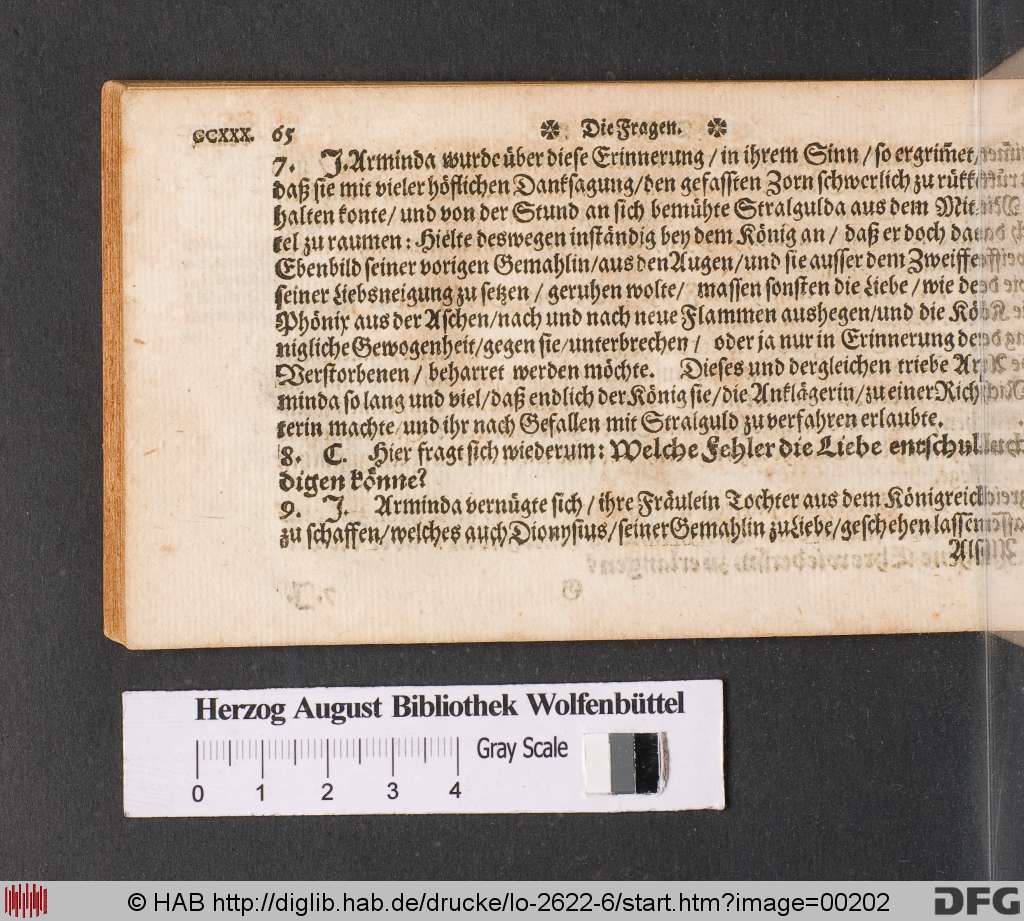 GCXXX. 65 Die Fragen.
7. J. Arminda wurde über diese Erinnerung / in ihrem Sinn / so ergrim̃et /
daß sie mit vieler höflichen Danksagung / den gefassten Zorn schwerlich zu rükk
halten konte / und von der Stund an sich bemühte Stralgulda aus dem Mit
tel zu raumen: Hielte deswegen inständig bey dem König an / daß er doch das
Ebenbild seiner vorigen Gemahlin / aus den Augen / und sie ausser dem Zweiffel
seiner Liebsneigung zu setzen / geruhen wolte / massen sonsten die Liebe / wie der
Phönix aus der Aschen / nach und nach neue Flammen aushegen / und die Kö
nigliche Gewogenheit / gegen sie / unterbrechen / oder ja nur in Erinnerung der
Verstorbenen / beharret werden möchte. Dieses und dergleichen triebe Ar
minda so lang und viel / daß endlich der König sie / die Anklägerin / zu einer Rich
terin machte / und ihr nach Gefallen mit Stralguld zu verfahren erlaubte.
8. C. Hier fragt sich wiederum: Welche Fehler die Liebe entschul
digen könne?
9. J. Arminda vernügte sich / ihre Fräulein Tochter aus dem Königreich
zu schaffen / welches auch Dionysius / seiner Gemahlin zu Liebe / geschehen lassen
Herzog August Bibliothek Wolfenbüttel
Gray Scale
0 1 2 3 4
© HAB http://diglib.hab.de/drucke/lo-2622-6/start.htm?image=00202
DFG